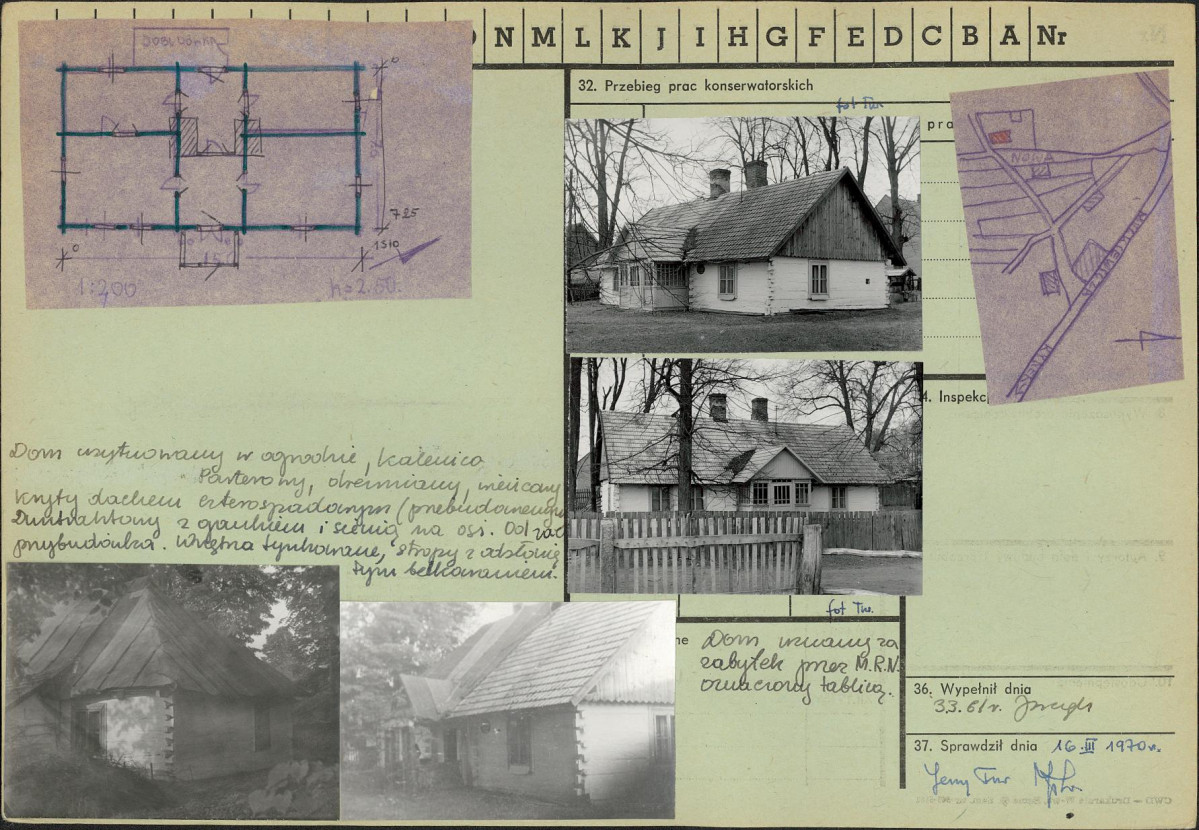 N M L K J I H G F E D C B A Nr
DOBUDÓWKA
0
725
0
1510
1:200
h=2.60.
32. Przebieg prac konserwatorskich
fot Tur.
pra
NOWA
KLUCZ
4. Inspekc
Dom usytuowany w ogrodzie, kalenicą
Parterowy, drewniany, wieńcowy
kryty dachem czterospadowym (przebudowanym
Dwutraktowy z gankiem i sienią na osi. Od
przybudówka. Wnętrza tynkowane, stropy z odsłonię
tym belkowaniem.
fot Tur.
ne
Dom uznany za
zabytek przez M.R.N.
oznaczony tablicą.
36. Wypełnił dnia
37. Sprawdził dnia 16.III 1970 r.
Jerzy Tur